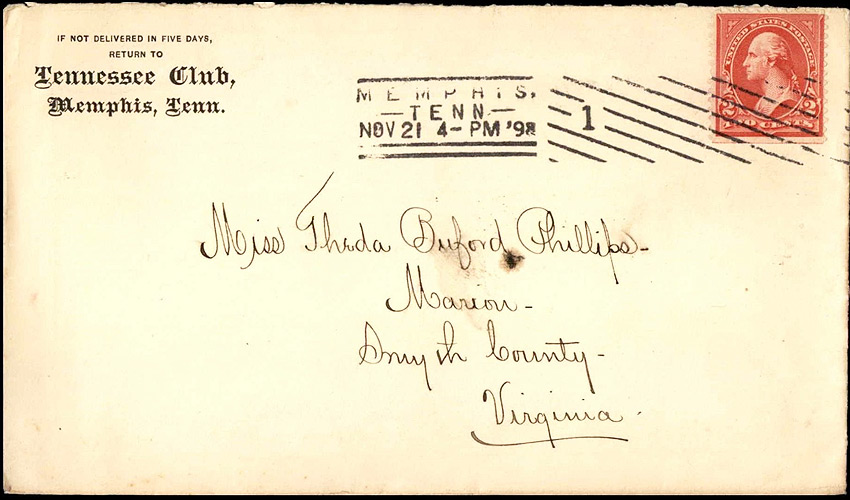 IF NOT DELIVERED IN FIVE DAYS,
RETURN TO
Tennessee Club,
Memphis, Tenn.
MEMPHIS,
TENN
NOV 21 4-PM '98
1
UNITED STATES POSTAGE
2 2
TWO CENTS
Miss Theda Buford Phillips-
Marion-
Smyth County-
Virginia.